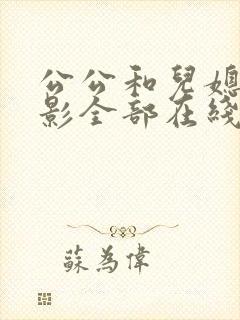 公公和兒媳
影全部在綫
蘇為偉